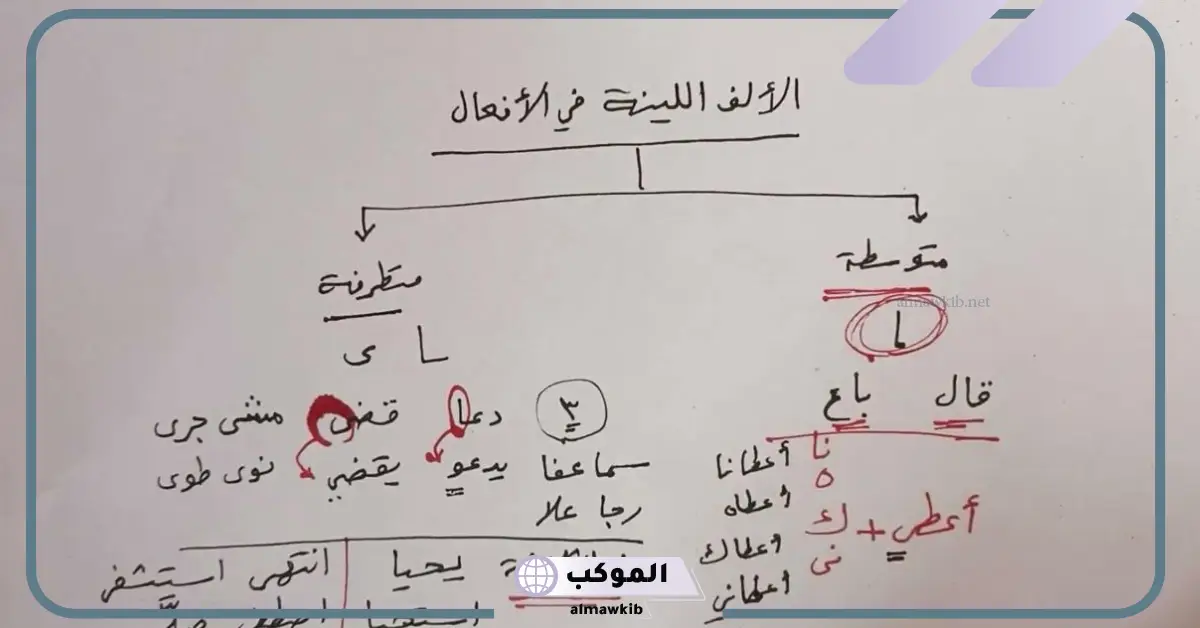 الألف اللينة في الأفعال
متوسطة
متطرفة
almawkib.net
ا
ـا ى
قال باع
٣ دعا قضى مشى جرى
سما عفا يدعو يقضي نوى طوى
رجا علا
أعطى + نا ه ك نى
أعطانا
أعطاه
أعطاك
أعطاني
يحيا انتهى استشفى
الموكب
almawkib